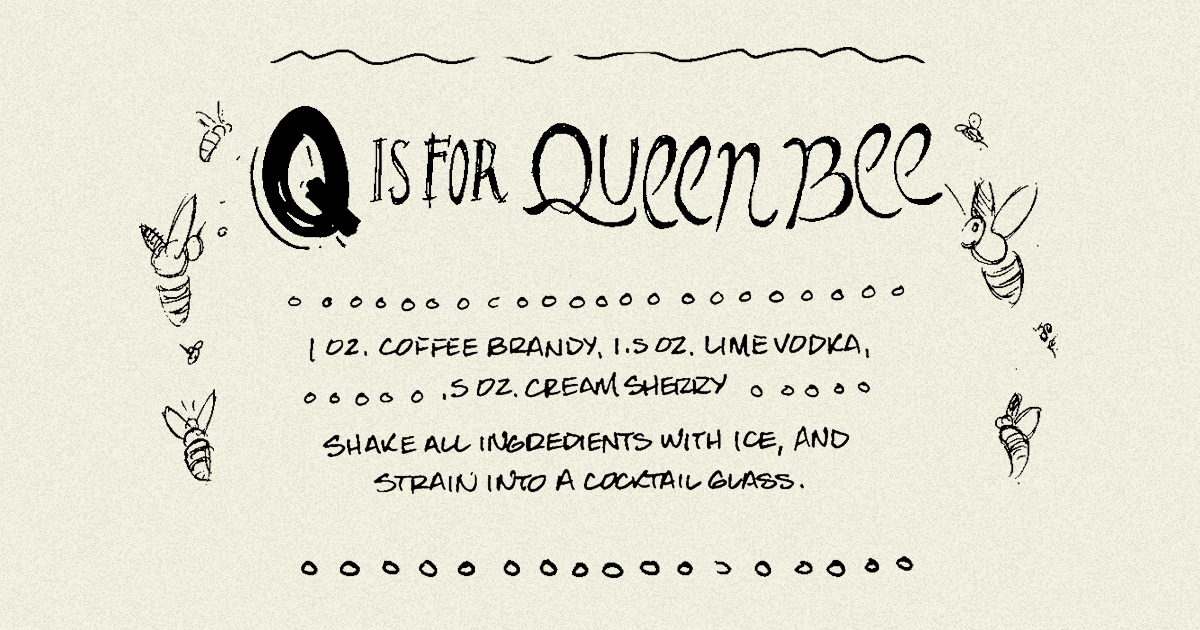 Q IS FOR QUEEN BEE
1 OZ. COFFEE BRANDY, 1.5 OZ. LIME VODKA,
.5 OZ. CREAM SHERRY
SHAKE ALL INGREDIENTS WITH ICE, AND
STRAIN INTO A COCKTAIL GLASS.